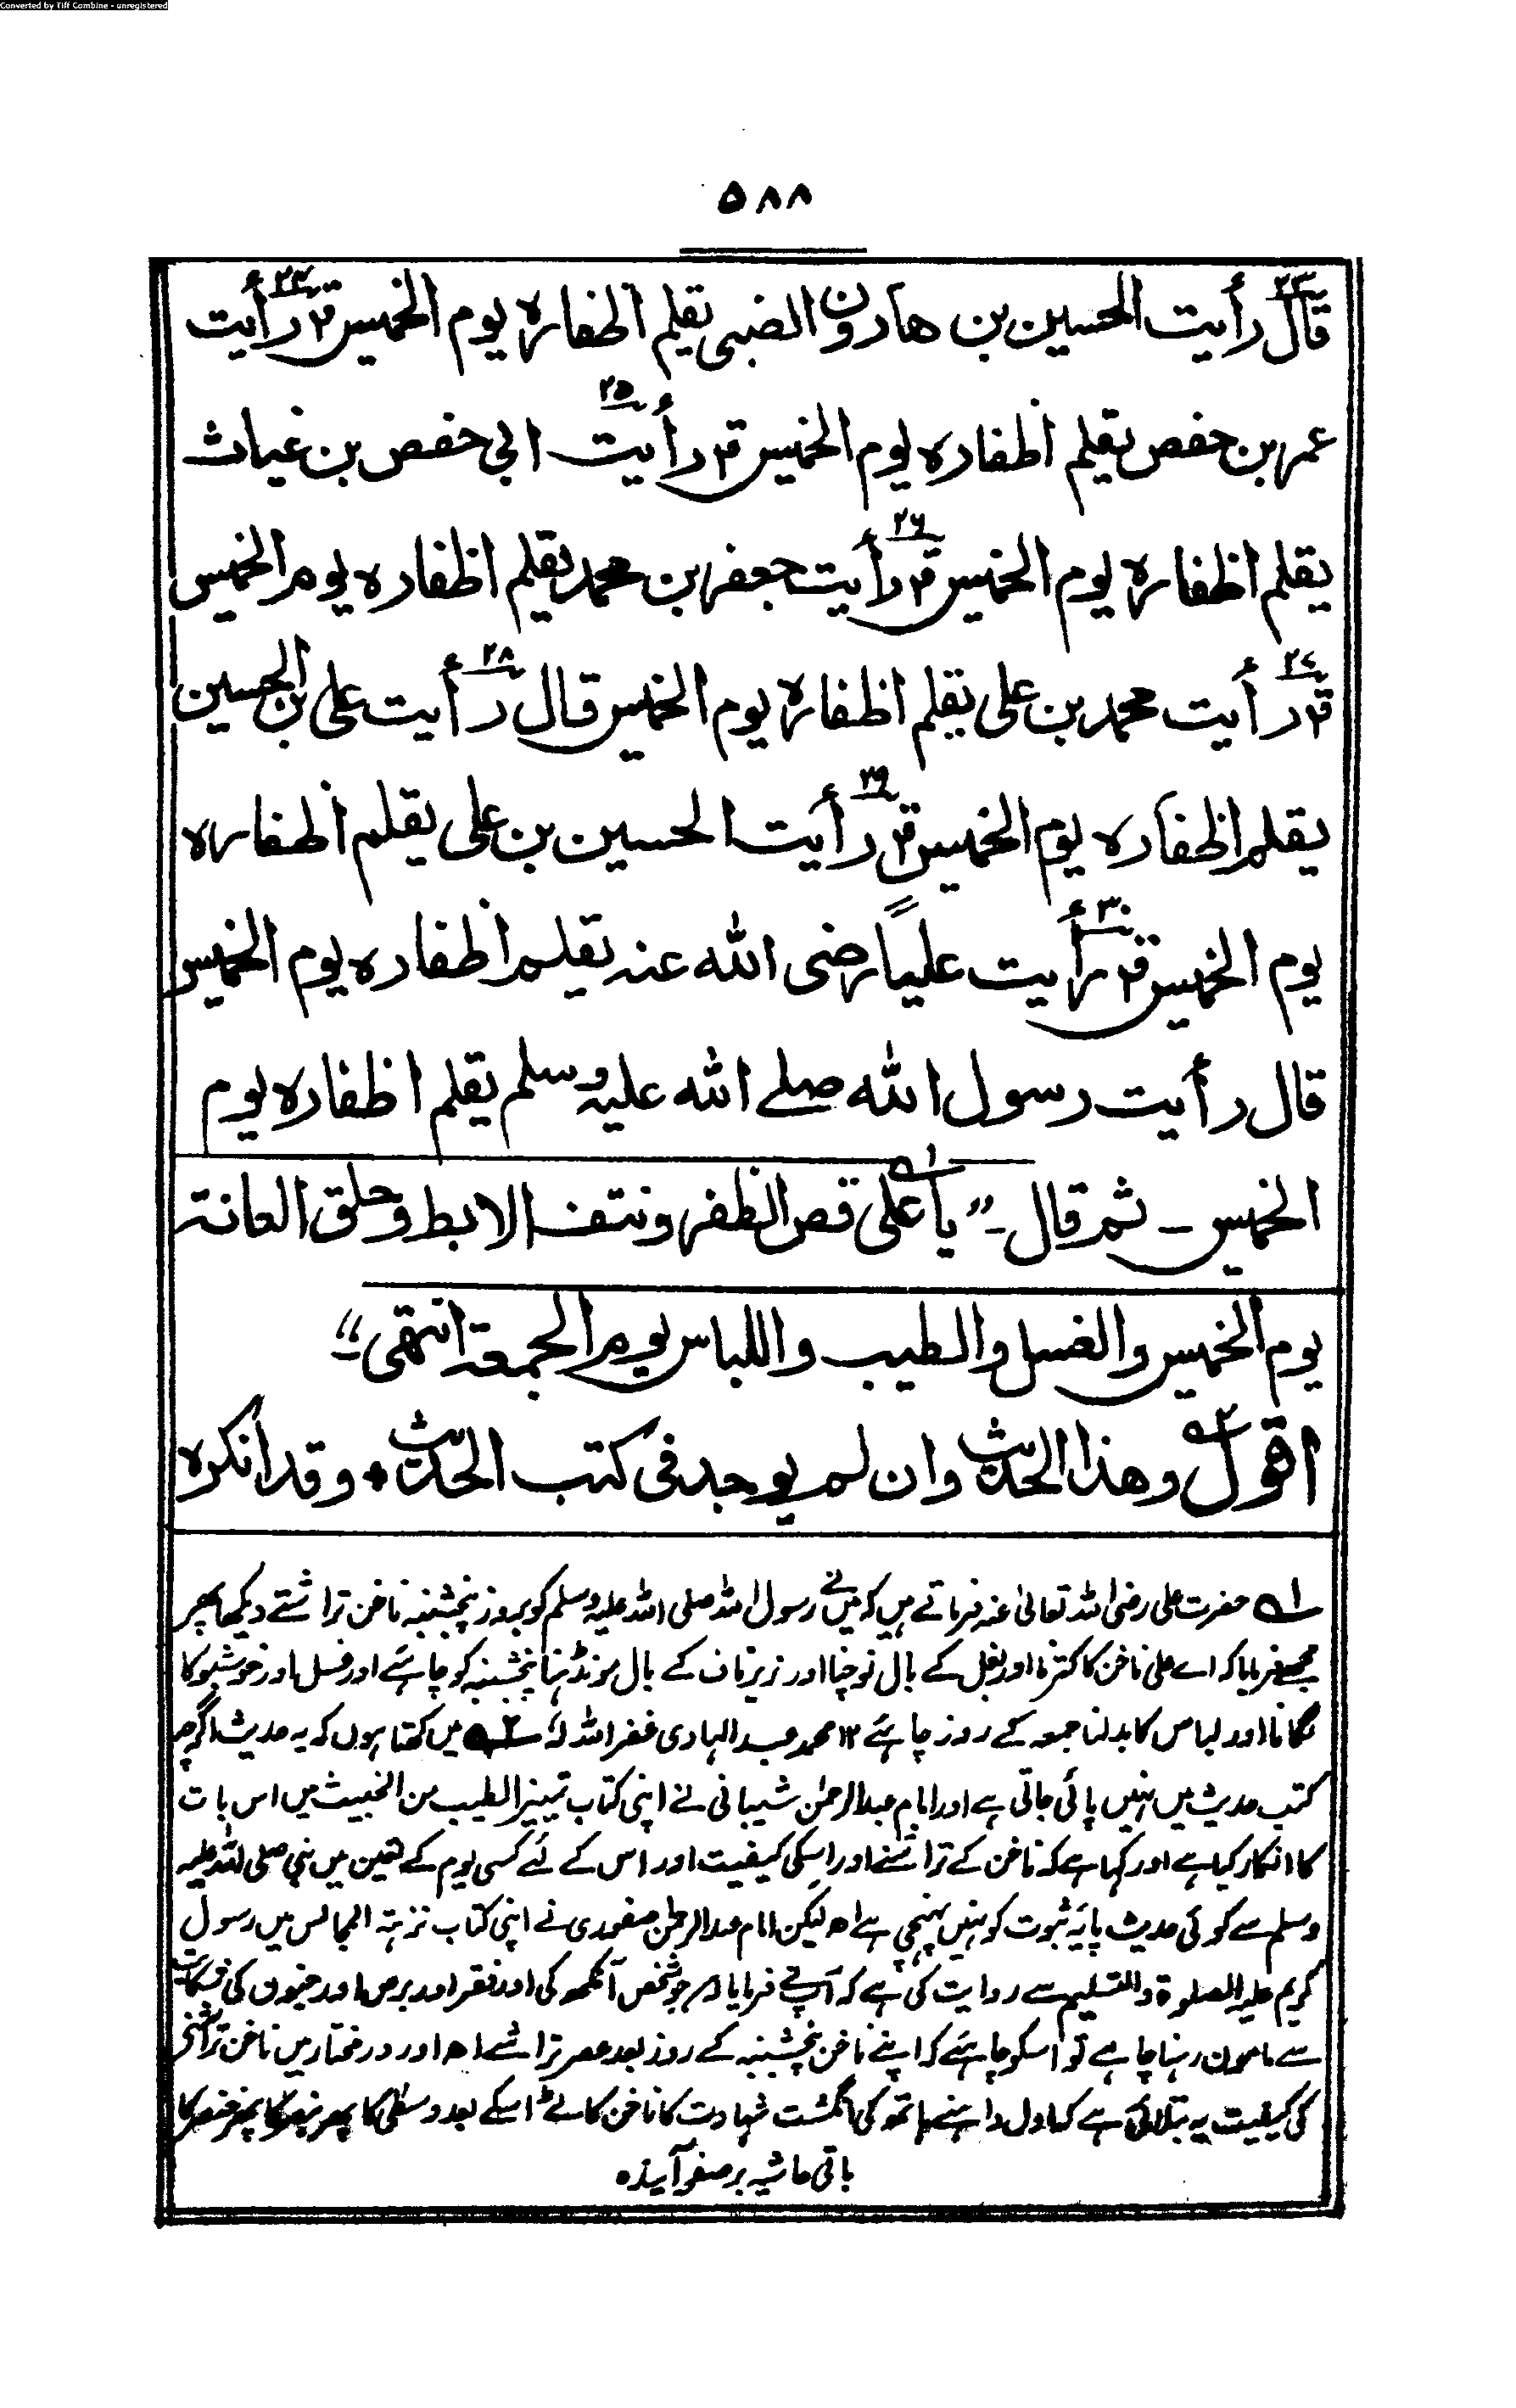 Converted by Tiff Combine - unregistered
۵۸۸
قال رأیت الحسین بن هارون الضبی یقلم اظفاره یوم الخمیس قال رأیت
عمر بن حفص یقلم اظفاره یوم الخمیس قال رأیت ابی حفص بن غیاث
یقلم اظفاره یوم الخمیس قال رأیت جعفر بن محمد یقلم اظفاره یوم الخمیس
قال رأیت محمد بن علی یقلم اظفاره یوم الخمیس قال رأیت علی بن الحسین
یقلم اظفاره یوم الخمیس قال رأیت الحسین بن علی یقلم اظفاره
یوم الخمیس قال رأیت علیاً رضی الله عنه یقلم اظفاره یوم الخمیس
قال رأیت رسول الله صلے الله علیه وسلم یقلم اظفاره یوم
الخمیس ـ ثم قال ـ " یا علی قص الظفر ونتف الابط وحلق العانة
یوم الخمیس والغسل والطیب واللباس یوم الجمعة انتهی "
اقول وهذا الحدیث وان لم یوجد فی کتب الحدیث وقد أنکره
لہ حضرت علی رضی اللہ تعالیٰ عنہ فرماتے ہیں کہ میں نے رسول اللہ صلی اللہ علیہ وسلم کو بروز پنجشنبہ ناخن تراشتے دیکھا پھر
مجھسے فرمایا کہ اے علی ناخن کا کترنا اور بغل کے بال نوچنا اور زیر ناف کے بال مونڈہنا پنجشنبہ کو چاہئے اور غسل اور خوشبو کا
لگانا اور لباس کا بدلنا جمعہ کے روز چاہئے ۱۲ محمد عبد الہادی غفر اللہ لہٗ ۲؎ میں کہتا ہوں کہ یہ حدیث اگرچہ
کتب حدیث میں نہیں پائی جاتی ہے اور امام عبدالرحمٰن شیبانی نے اپنی کتاب تمییز الطیب من الخبیث میں اس بات
کا انکار کیا ہے اور کہا ہے کہ ناخن کے تراشنے اور اسکی کیفیت اور اس کے لئے کسی یوم کے تعین میں نبی صلی اللہ علیہ
وسلم سے کوئی حدیث پایۂ ثبوت کو نہیں پہنچی ہے اھ لیکن امام عبدالرحمٰن صفوری نے اپنی کتاب نزہتہ المجالس میں رسول
کریم علیہ الصلوۃ والتسلیم سے روایت کی ہے کہ آپنے فرمایا کہ جو شخص آنکھ کی اور فقر اور برص اور جنون کی شکایت
سے مامون رہنا چاہے تو اسکو چاہئے کہ اپنے ناخن پنجشنبہ کے روز بعد عصر تراشے اھ اور درمختار میں ناخن تراشنے
کی کیفیت یہ بتلائی ہے کہ اول داہنے ہاتھ کی انگشت شہادت کا ناخن کاٹے اسکے بعد وسطٰی کا پھر بنصر کا پھر خنصر کا
باقی حاشیہ بر صفحہ آیندہ